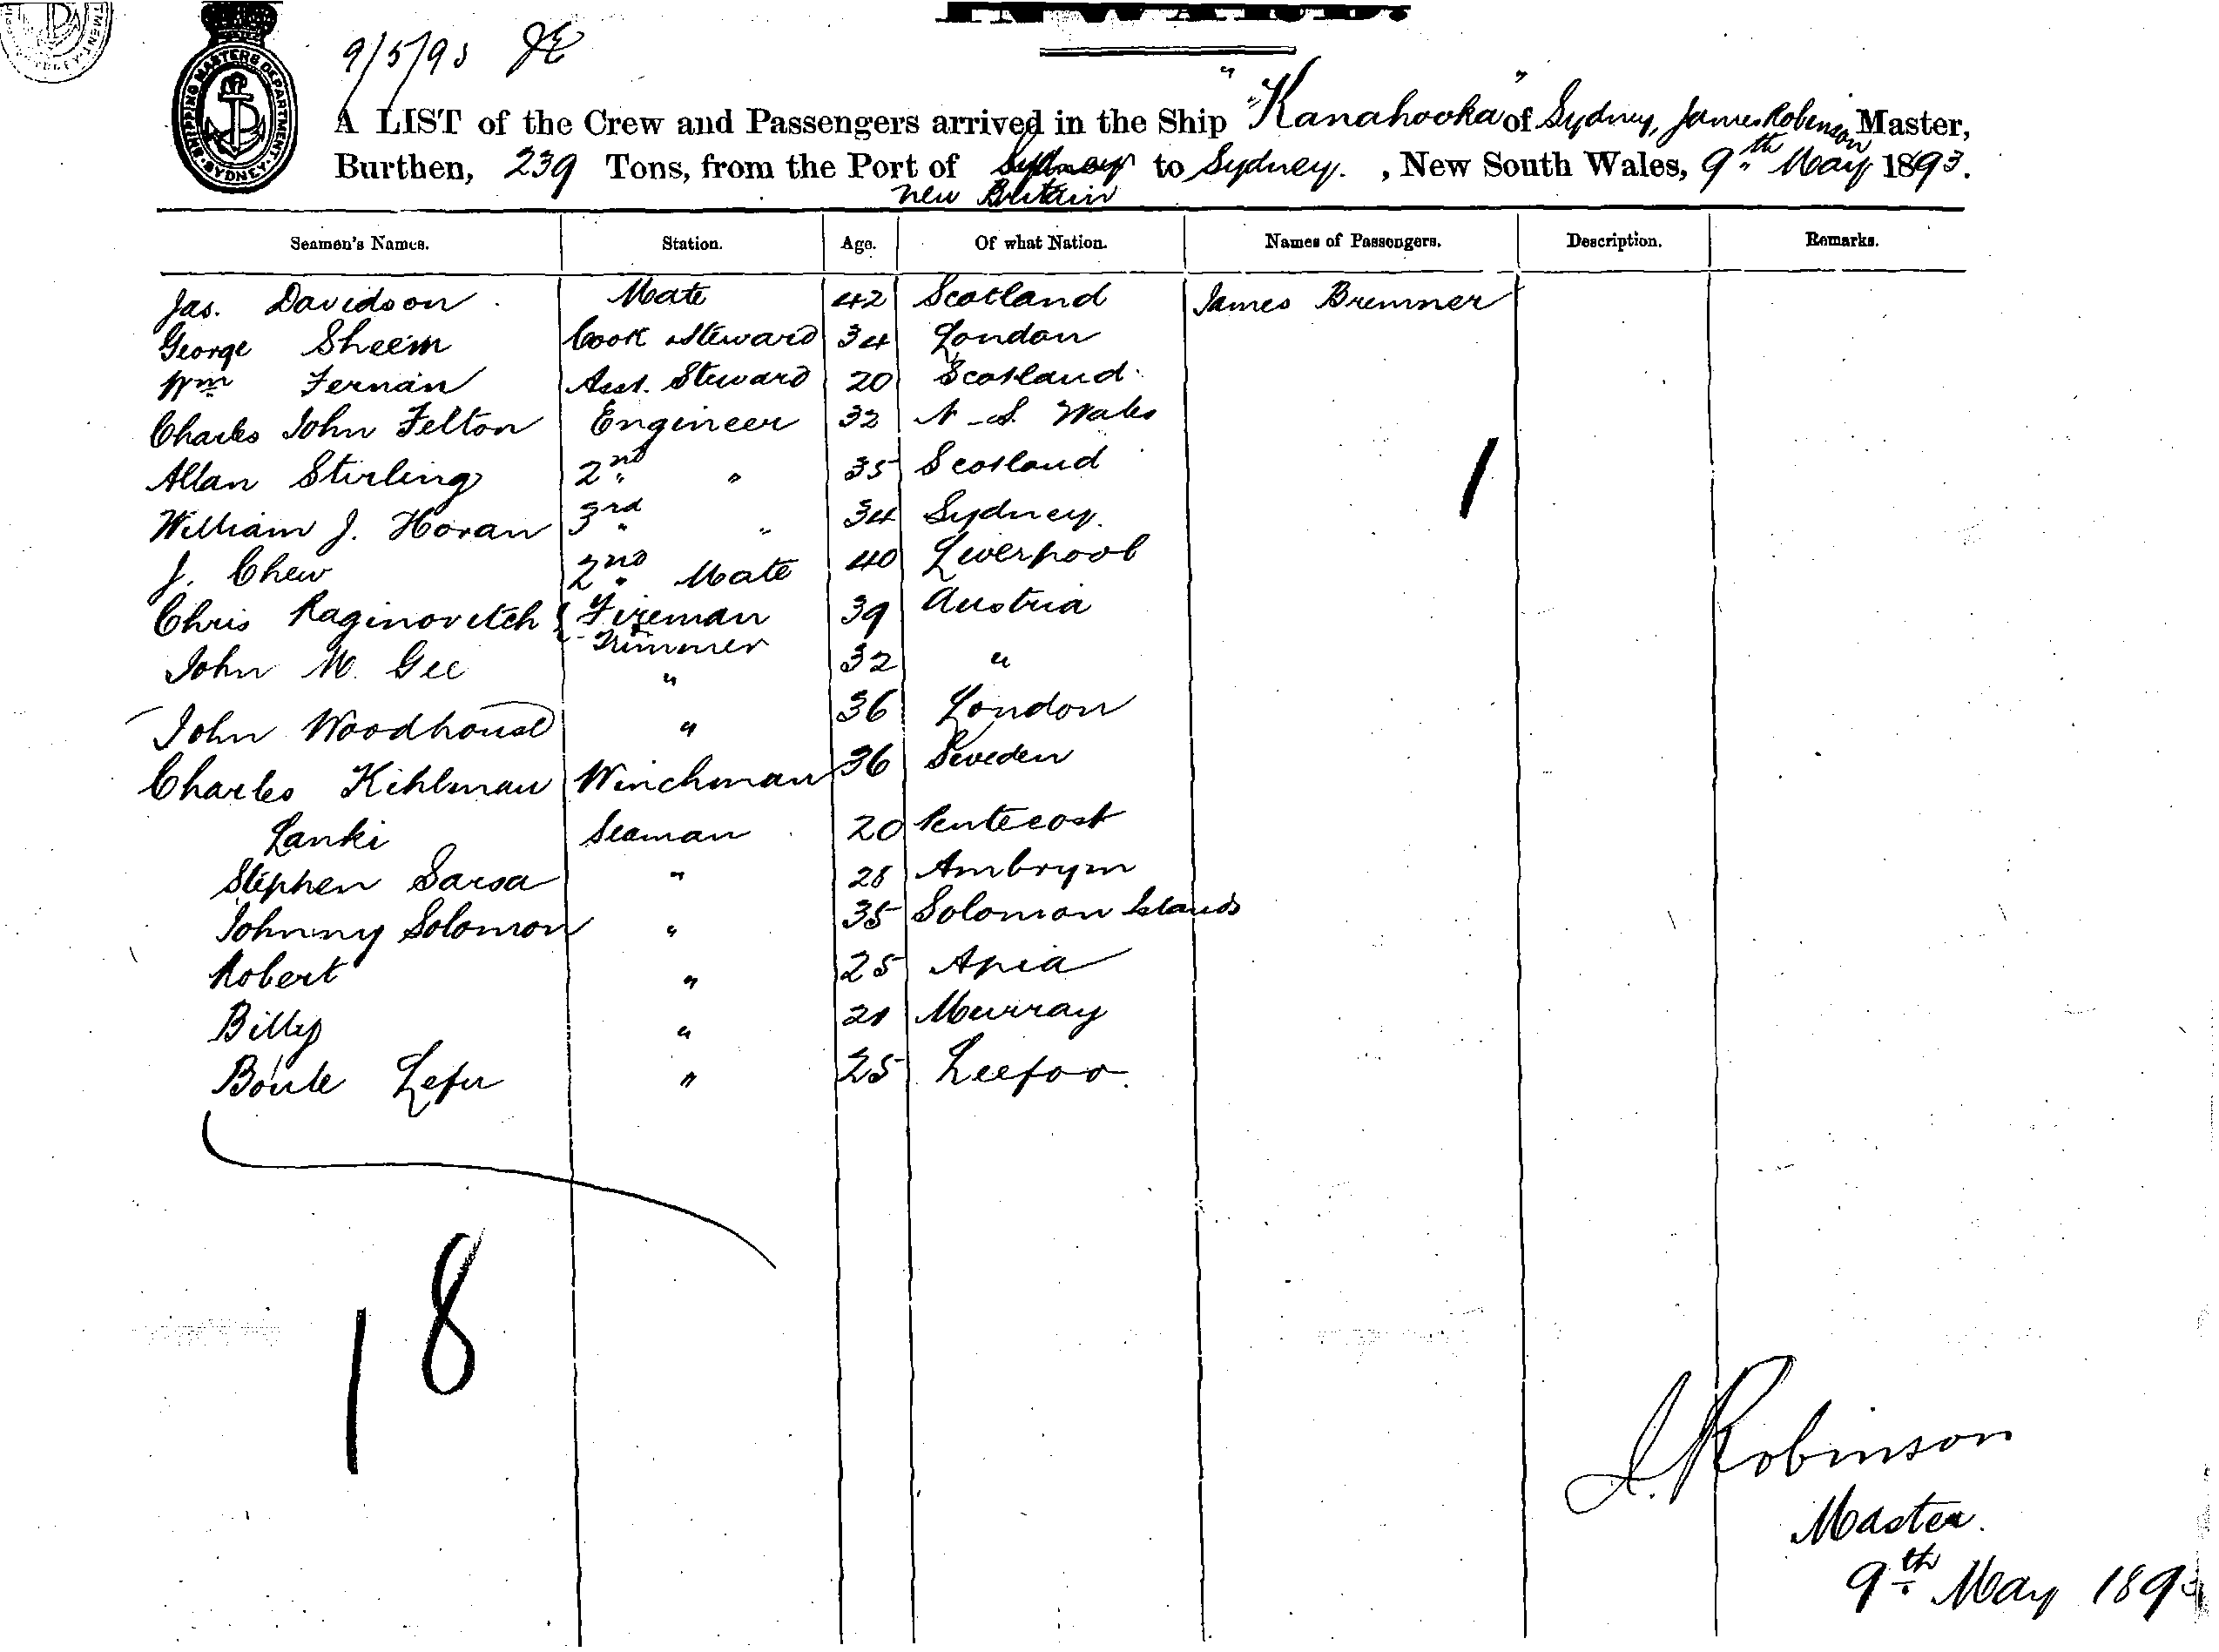 INWARDS.
SHIPPING MASTERS DEPARTMENT SYDNEY
9/5/93 JE
A LIST of the Crew and Passengers arrived in the Ship "Kanahooka" of Sydney, James Robinson Master,
Burthen, 239 Tons, from the Port of Sydney to Sydney. , New South Wales, 9th May 1893.
New Britain
Seamen's Names. Station. Age. Of what Nation. Names of Passengers. Description. Remarks.
Jas. Davidson Mate 42 Scotland James Bremner
George Sheem Cook & Steward 34 London
Wm Fernan Asst. Steward 20 Scotland
Charles John Felton Engineer 32 N. S. Wales
Allan Stirling 2nd " 35 Scotland
William J. Horan 3rd " 34 Sydney
J. Chew 2nd Mate 40 Liverpool
Chris Raginovitch Fireman 39 Austria
Trimmer
John M. Gee " 32 "
John Woodhouse " 36 London
Charles Kihlman Winchman 36 Sweden
Lanki Seaman 20 Pentecost
Stephen Sarsa " 28 Ambrym
Johnny Solomon " 35 Solomon Islands
Robert " 25 Apia
Billy " 21 Murray
Boule Lefu " 25 Leefoo.
1
18
J. Robinson
Master.
9th May 1893